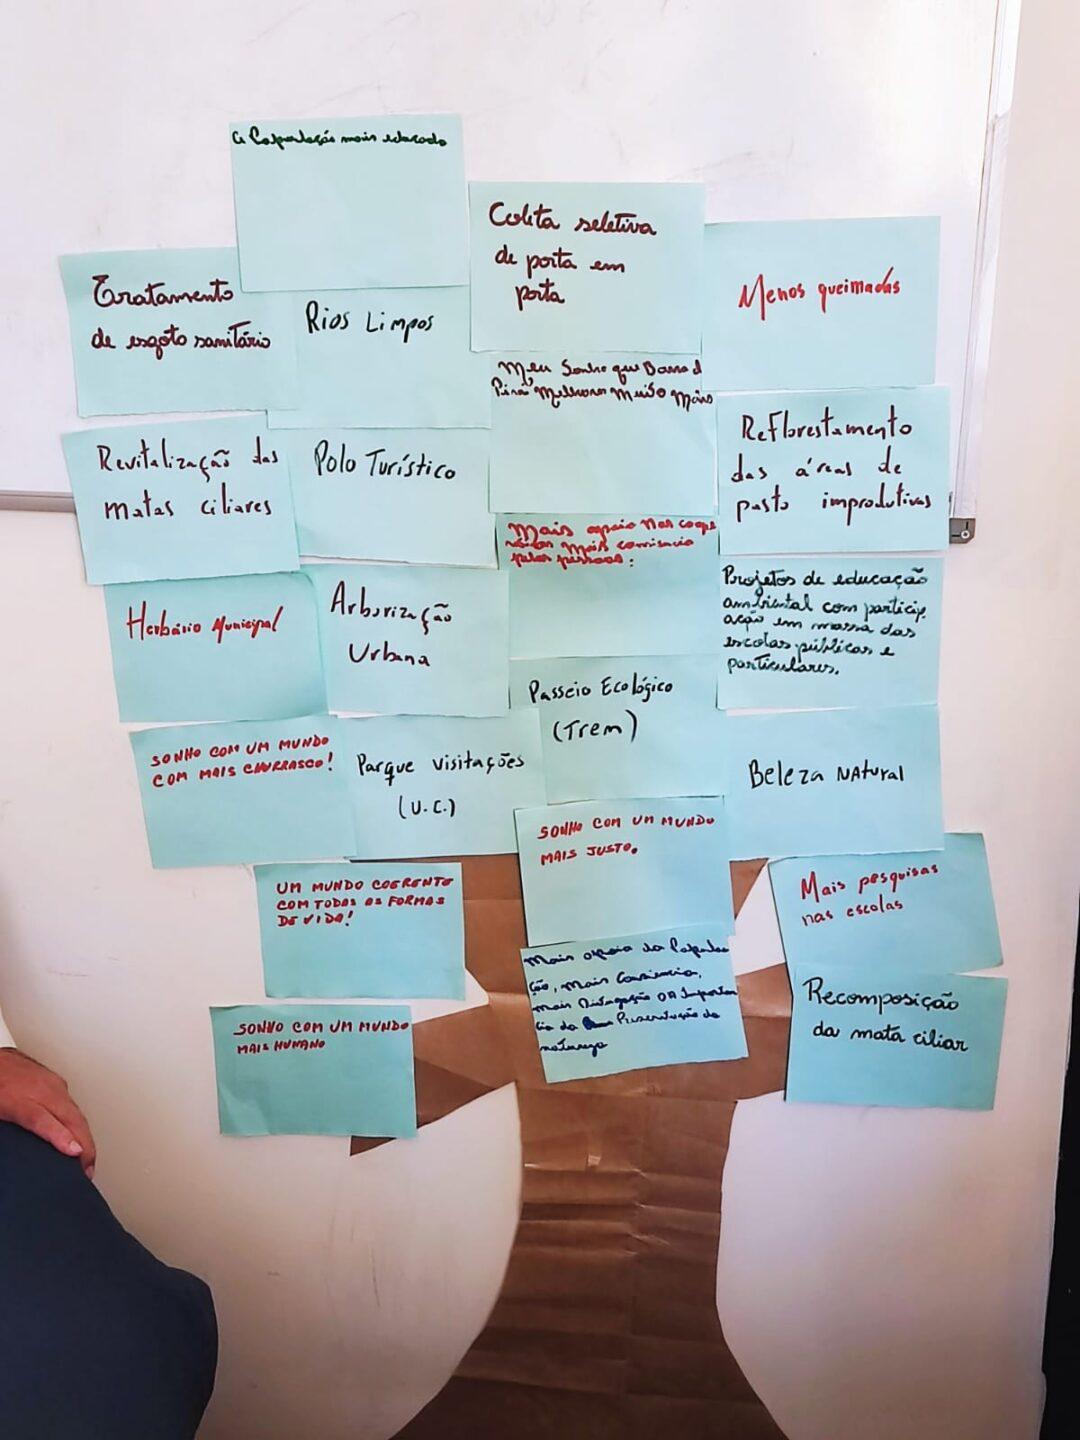 A População mais educada
Coleta seletiva
de porta em
porta
Menos queimadas
Tratamento
de esgoto sanitário
Rios Limpos
Meu Sonho que Barra d
Pirai Melhora Muito Mais
Reflorestamento
das áreas de
pasto improdutivas
Revitalização das
matas ciliares
Polo Turístico
Mais apoio nas coope
mais
pelas pessoas:
Projetos de educação
ambiental com particip
ação em massa das
escolas públicas e
particulares.
Herbário Municipal
Arborização
Urbana
Passeio Ecológico
(Trem)
SONHO COM UM MUNDO
COM MAIS CHURRASCO!
Parque visitações
(U.C.)
Beleza Natural
SONHO COM UM MUNDO
MAIS JUSTO.
UM MUNDO COERENTE
COM TODAS AS FORMAS
DE VIDA!
Mais pesquisas
nas escolas
Mais apoio da Popula
ção, mais Consiencia,
mais Divugação DA Importan
cia da Preservação da
natureza
Recomposição
da mata ciliar
SONHO COM UM MUNDO
MAIS HUMANO